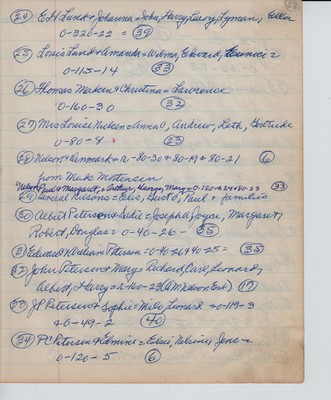 (24) E.H. Lund & Johanna = John, Harry, Leroy, Lyman, Ella
0-320-22 = (39)
(25) Louis Lund & Amanda = Wilma, Edward, Eunice =
0-115-14 (33)
(26) Thomas Madsen & Christina = Lawrence
0-160-30 (32)
(27) Mrs Louis Nielsen = Anna C, Andrew, Ruth, Gertrude
0-80-8 (23)
(28) Nelson & Denmark = R-80-30 & 80-19 & 80-21 (6)
from Mads Mortensen
Nelson, Paul & Margaret, = Arthur, George, Mary = 0-120 & 24 & 80-23 (33)
(29) Several Nelsons = Elsie, Paul & families
(30) Albert Peterson & Sadie = Joseph & Joyce, Margaret,
Robert, Douglas = 0-40-26 - (35)
(31) Edward & William Peterson = 0-40-26 & 40-25 = (35)
(32) John Petersen & Mary = Richard, Carl, Leonard,
Albert, Harry = R-160-23 (17)
(33) J.P. Petersen & Sophie = Milo, Leonard = 0-119-3
& 0-49-2 (40)
(34) P C Petersen & Elmine = Elsie, Nelsine, Jens =
0-120-5 (6)